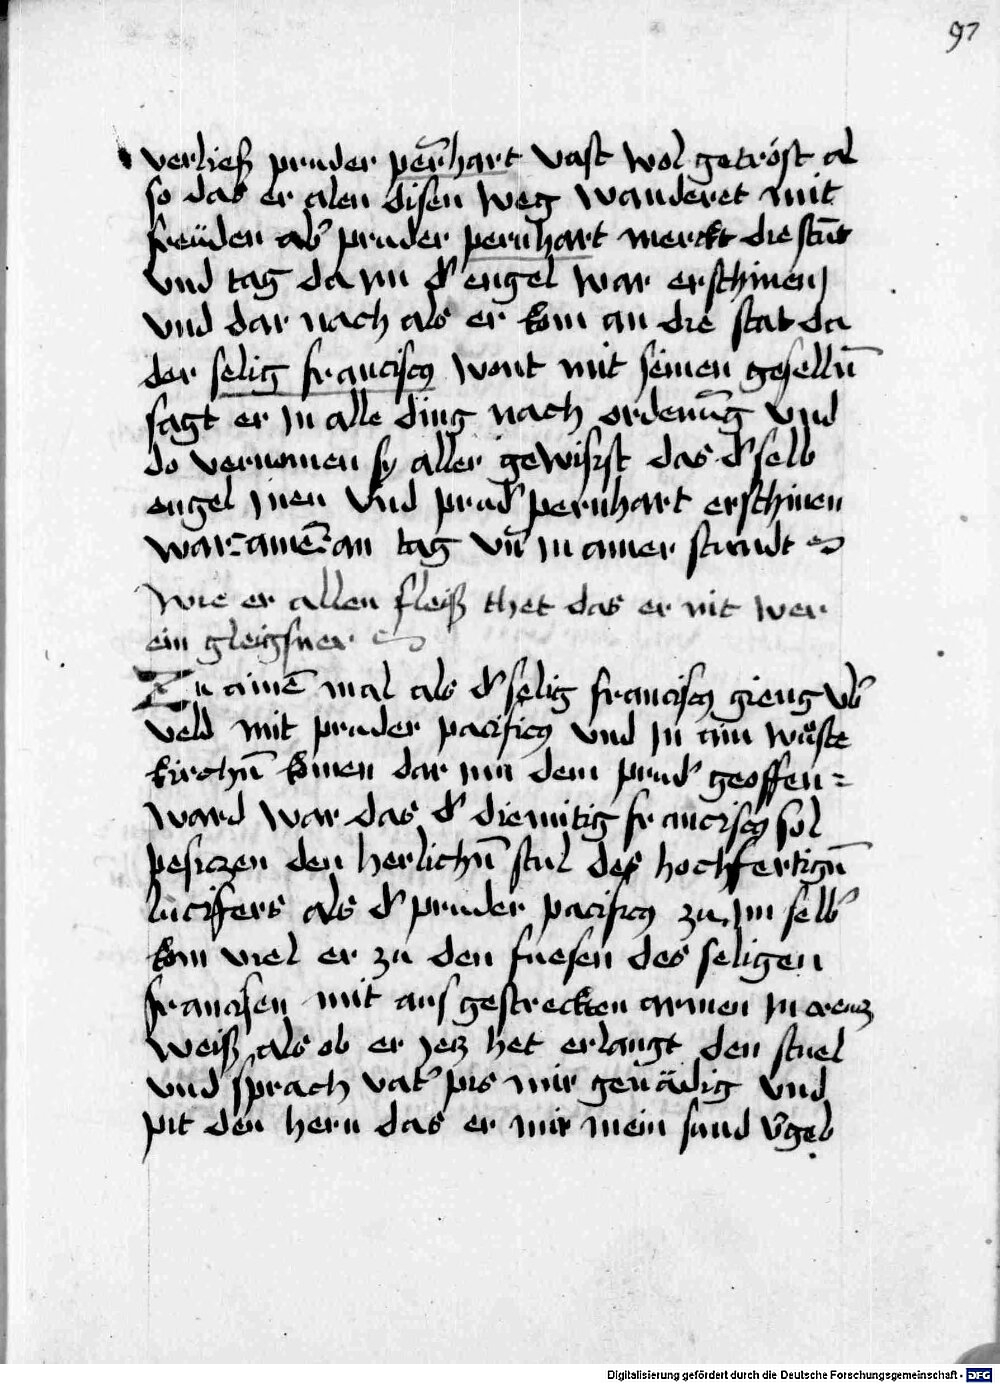 97
verließ pruder per̄hart vast wol getröst al
so das er alen disen weg wanderet mit
freüden ab͛ pruder pernhart merckt die stūt
und tag da im d͛ engel war erschinen
und dar nach als er kom an die stat da
der selig franciscꝯ wont mit seinen geselln̄
sagt er in alle ding nach ordenūg und
do vernomen sy aller gewisist das d͛ selb
engel inen und prud͛ pernhart erschinen
war amē an tag vn̄ in ainer stundt
Wie er allen fleiß thet das er nit wer
ein gleigsner
Zu ainē mal als d͛ selig franciscꝯ gieng vb͛
veld mit pruder pacificꝯ und in ain wůste
kirchn̄ komen dar inn dem prud͛ geoffen=
ward war das d͛ diemitig franciscꝯ sol
pesiczen den herlichn̄ stul des hochfertign̄
lucifers als d͛ pruder pacificꝯ zu im selb͛
kom viel er zu den fuesen des seligen
francisen mit ausgestreckten armen in creucz
weiß als ob er jecz het erlangt den stuel
und sprach vat͛ pis mir genädig und
pit den hern das er mir mein sund v͛geb
Digitalisierung gefördert durch die Deutsche Forschungsgemeinschaft - DFG